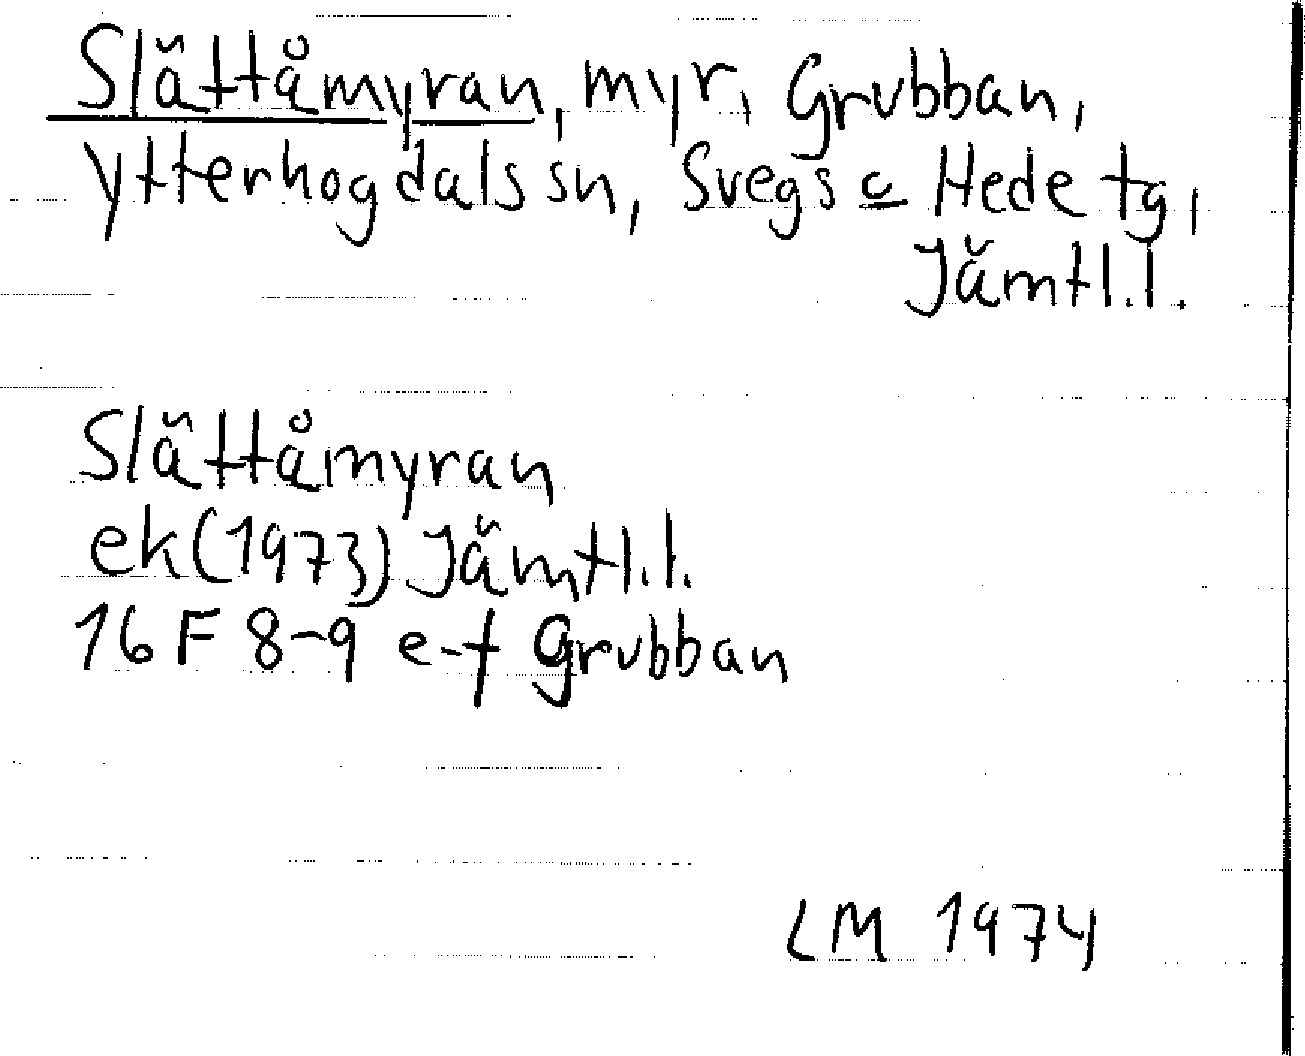 Slättåmyran, myr, Grubban,
Ytterhogdals sn, Svegs o Hede tg,
Jämtl.l.
Slättåmyran
ek (1973) Jämtl.l.
16 F 8-9 e-f Grubban
LM 1974